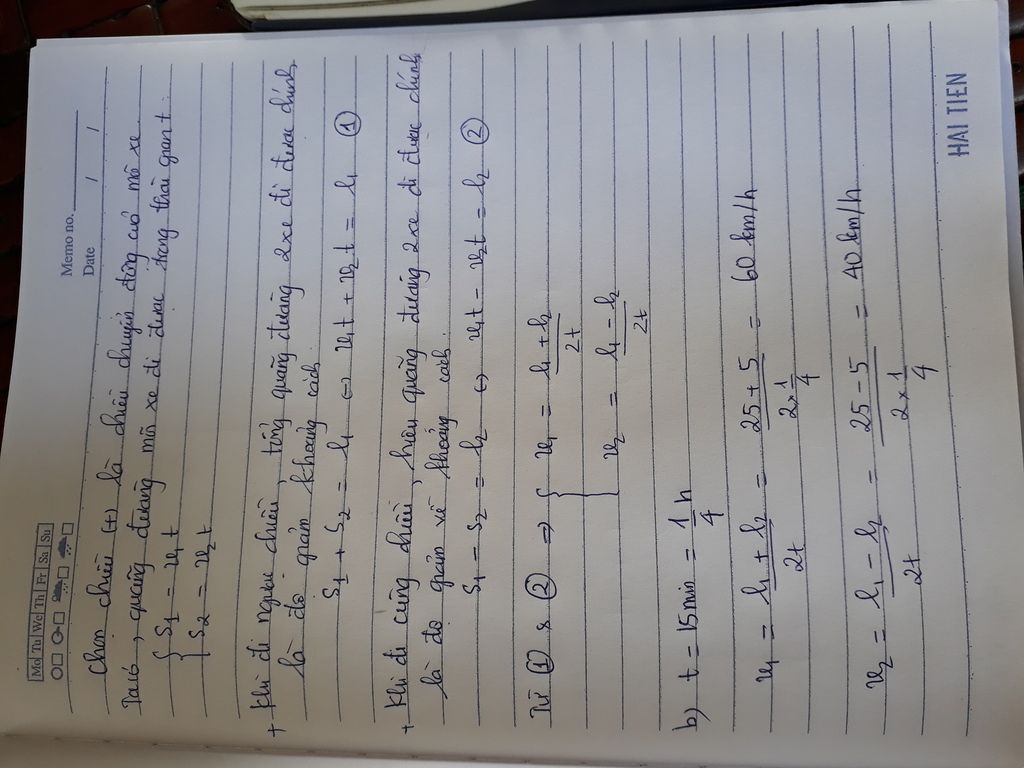 Memo no.
Mo Tu We Th Fr Sa Su
Date / /
Chọn chiều (+) là chiều chuyển động của mỗi xe.
Ta có, quãng đường mỗi xe đi được trong thời gian t.
S1 = v1t
S2 = v2t
+ Khi đi ngược chiều, tổng quãng đường 2 xe đi được chính
là độ giảm khoảng cách
S1 + S2 = l1 ⇔ v1t + v2t = l1 ①
+ Khi đi cùng chiều, hiệu quãng đường 2 xe đi được chính
là độ giảm về khoảng cách
S1 - S2 = l2 ⇔ v1t - v2t = l2 ②
Từ ① & ② ⇒ { v1 = (l1 + l2)/2t
v2 = (l1 - l2)/2t
b) t = 15 min = 1/4 h
v1 = (l1 + l2)/2t = (25 + 5)/(2 × 1/4) = 60 km/h
v2 = (l1 - l2)/2t = (25 - 5)/(2 × 1/4) = 40 km/h
HAI TIEN